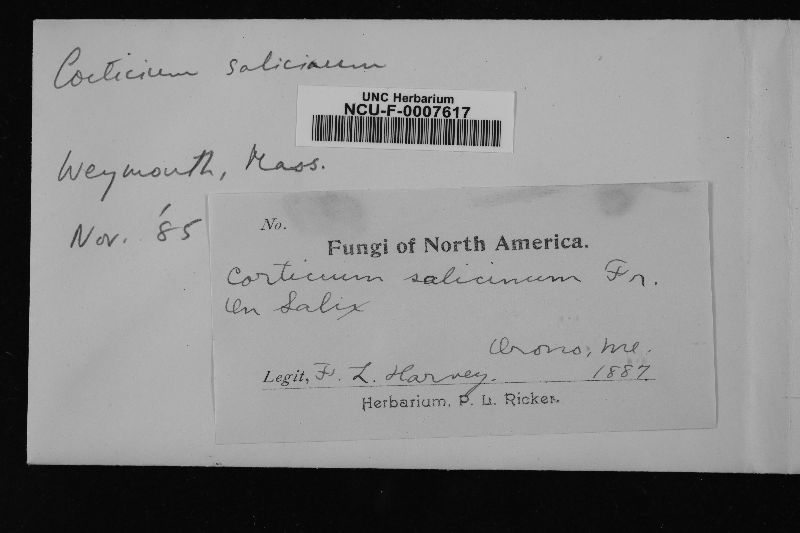 Corticium salicinum
UNC Herbarium
NCU-F-0007617
Weymouth, Mass.
Nov. '85
No.
Fungi of North America.
Corticium salicinum Fr.
On Salix
Orono, Me.
Legit, F. L. Harvey. 1887
Herbarium, P. L. Ricker.